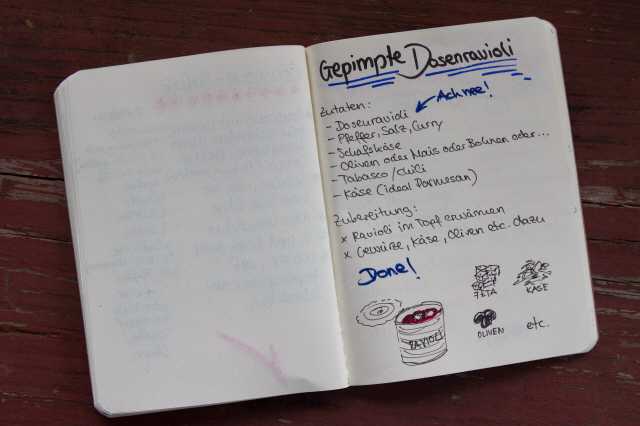 Gepimpte Dosenravioli
Zutaten:
Ach nee!
- Dosenravioli
- Pfeffer, Salz, Curry
- Schafskäse
- Oliven oder Mais oder Bohnen oder...
- Tabasco / Chili
- Käse (ideal Parmesan)
Zubereitung:
x Ravioli im Topf erwärmen
x Gewürze, Käse, Oliven etc. dazu
Done!
FETA
KÄSE
OLIVEN
etc.
RAVIOLI